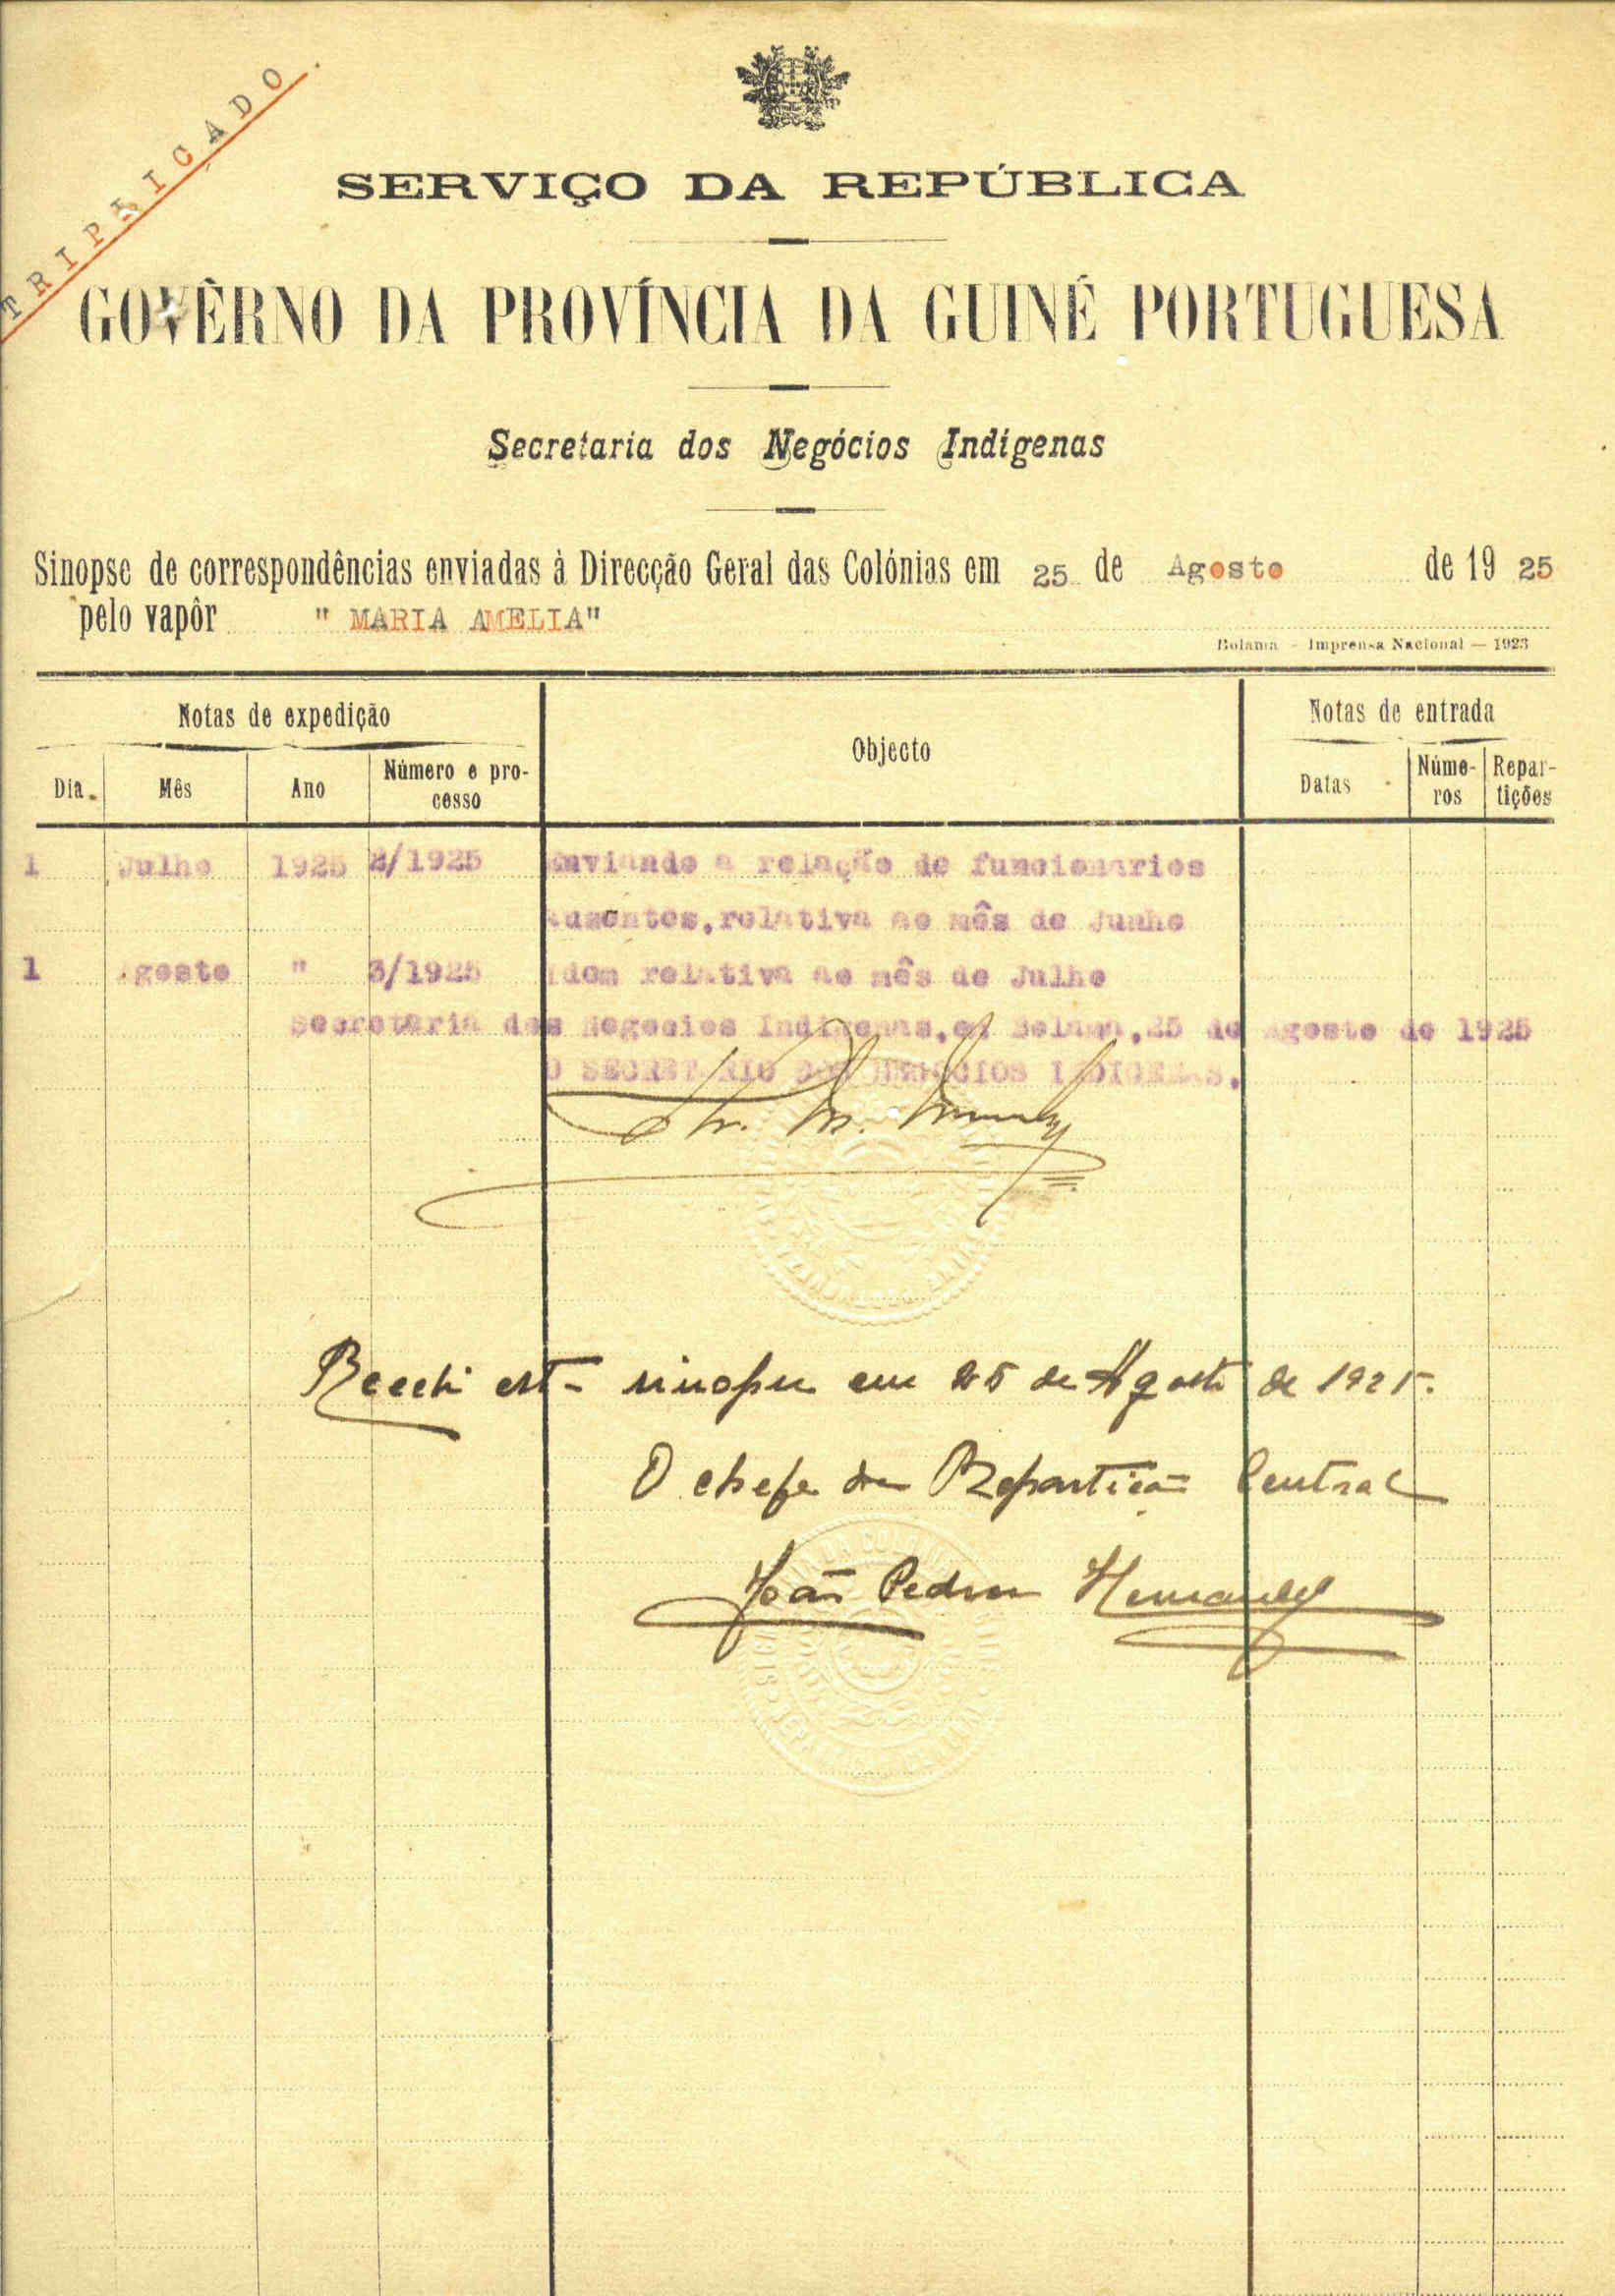 TRIPLICADO.
SERVIÇO DA REPÚBLICA
GOVÊRNO DA PROVÍNCIA DA GUINÉ PORTUGUESA
Secretaria dos Negócios Indígenas
Sinopse de correspondências enviadas à Direcção Geral das Colónias em 25 de Agosto de 19 25
pelo vapôr " MARIA AMELIA"
Bolama - Imprensa Nacional — 1923
Notas de expedição Objecto Notas de entrada
Dia Mês Ano Número e pro-
cesso Datas Núme-
ros Repar-
tições
1 Julho 1925 2/1925 Enviando a relação de funcionarios
ausentes, relativa ao mês de Junho
1 Agosto " 3/1925 Idem relativa ao mês de Julho
Secretaria dos Negocios Indigenas, em Bolama, 25 de Agosto de 1925
O SECRETARIO DOS NEGOCIOS INDIGENAS,
Recebi esta sinopse em 25 de Agosto de 1925.
O chefe da Repartição Central
João Pedro